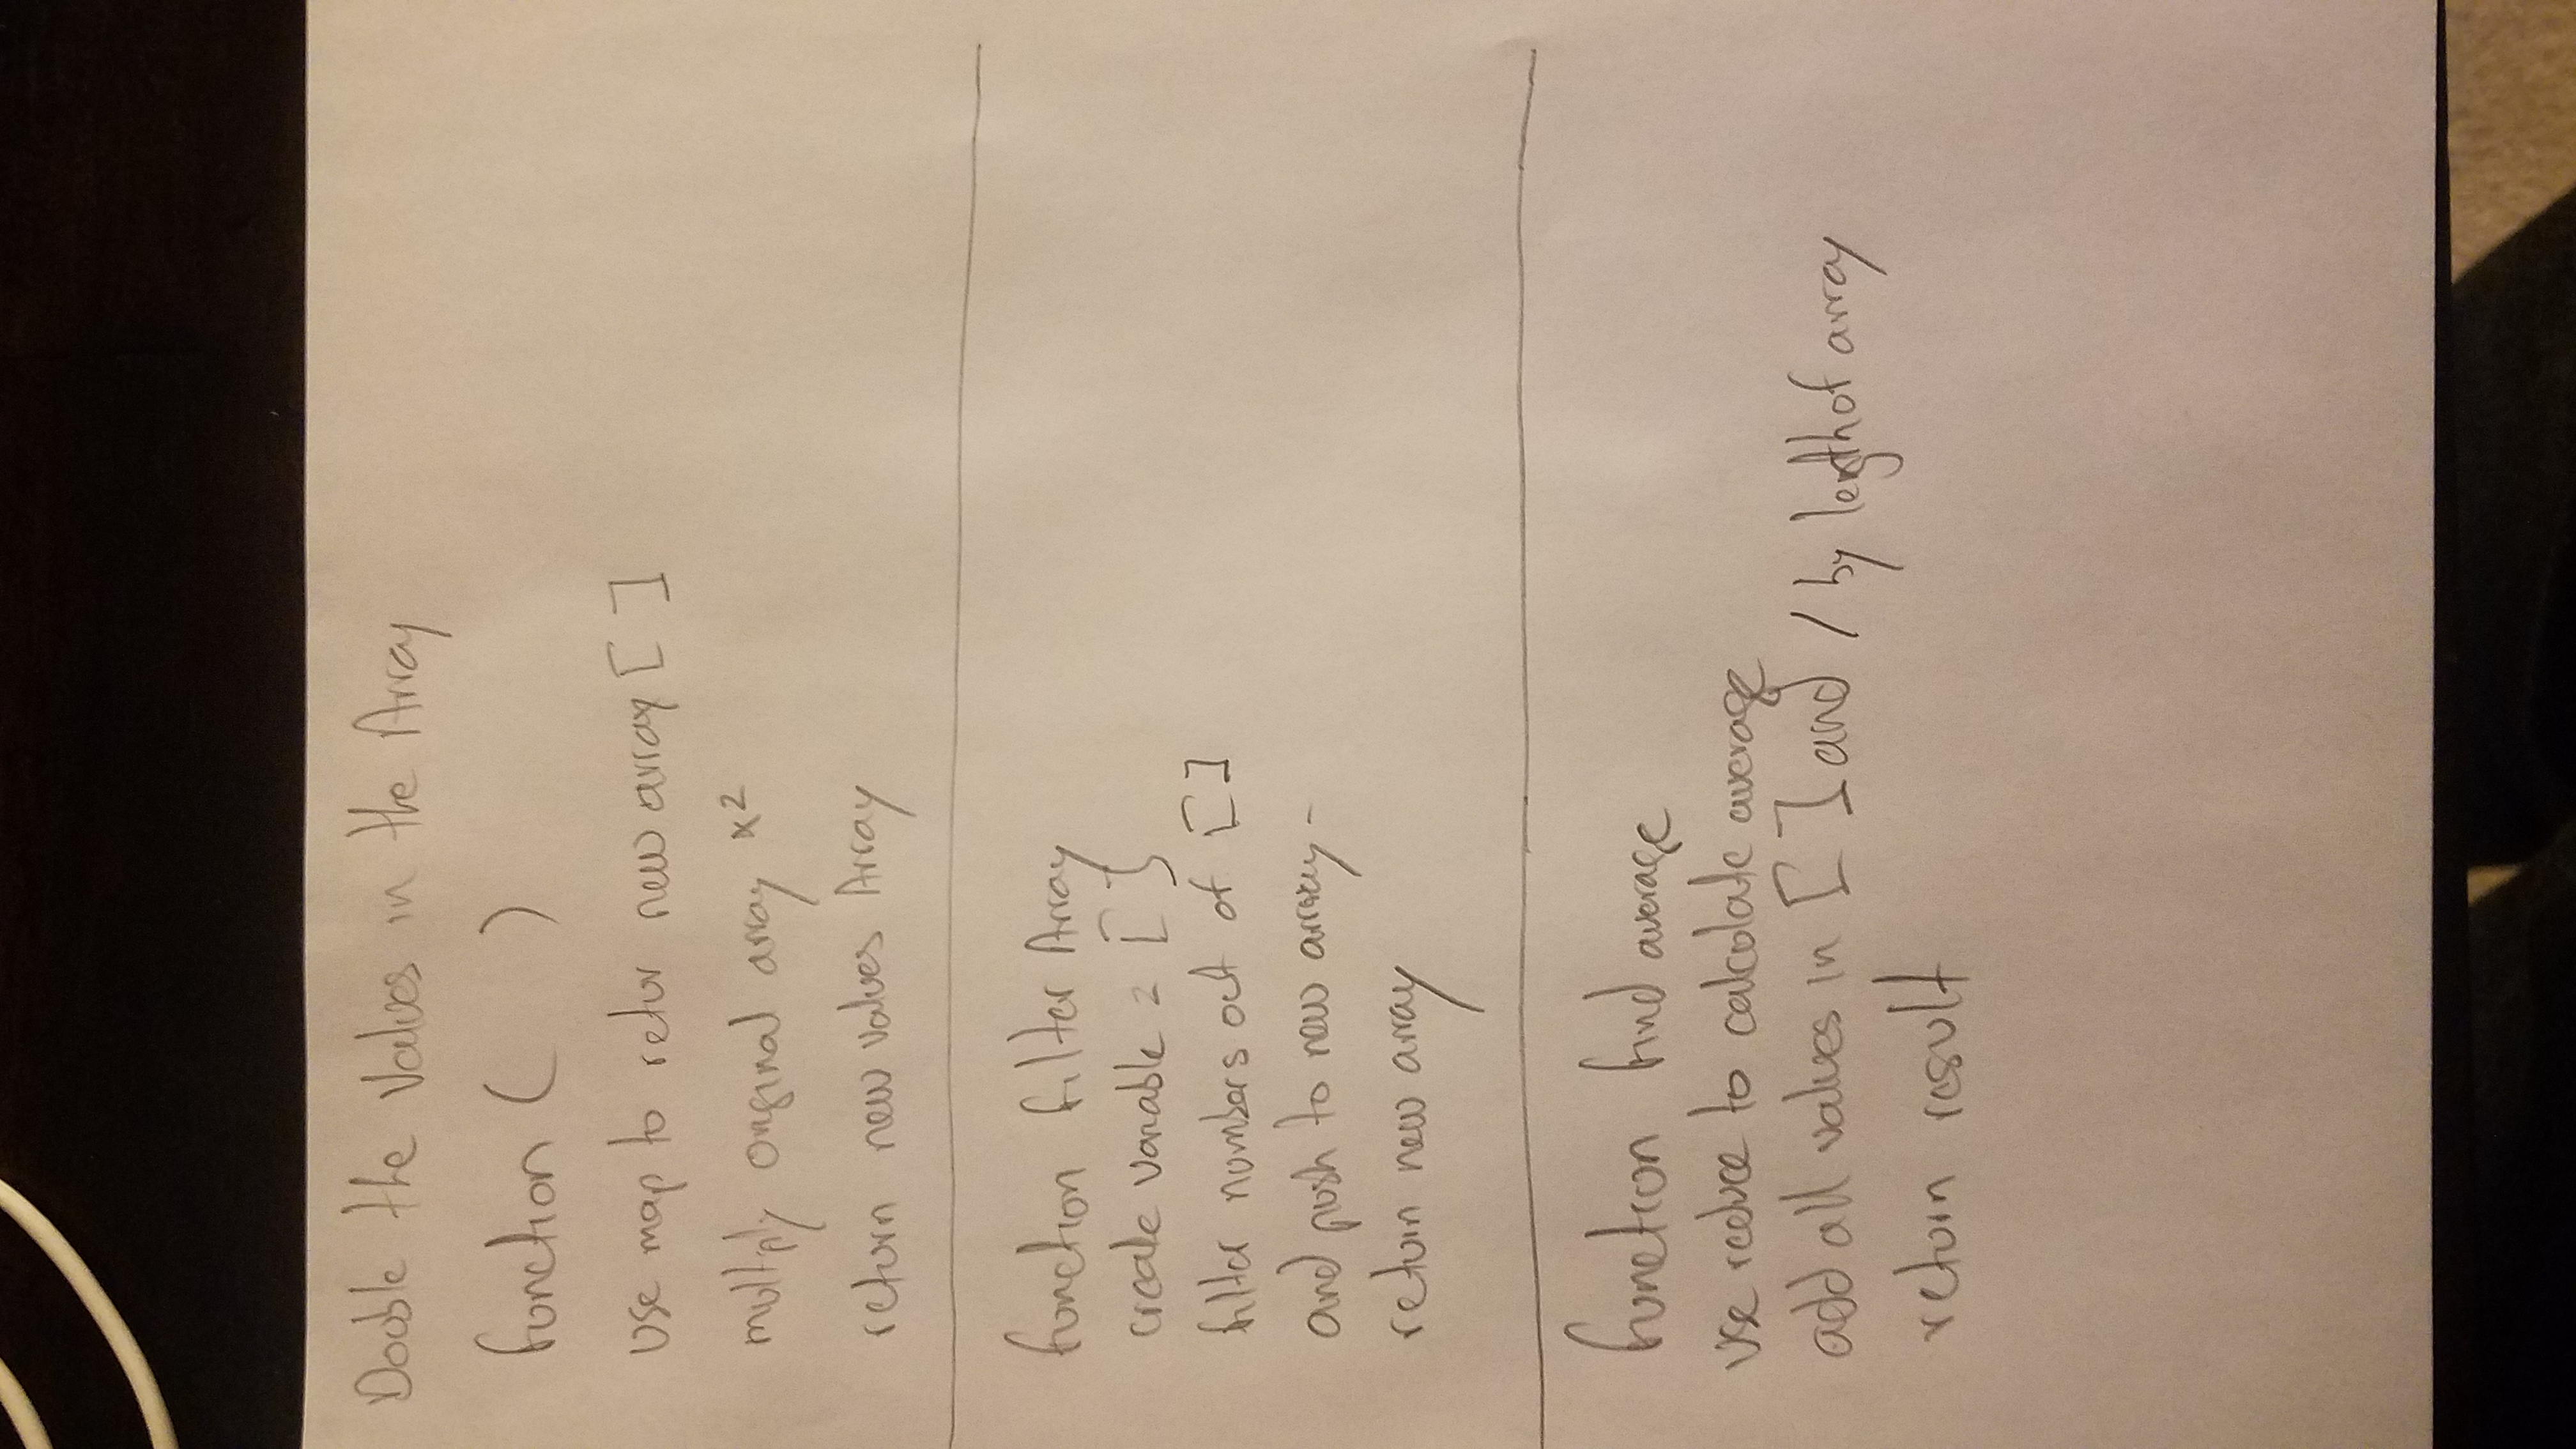 Double the Values in the Array
function ( )
use map to retur new array [ ]
multiply original array x2
return new values Array
function filter Array
create variable = [ ]
filter numbers out of [ ]
and push to new array -
return new array
function find average
use reduce to calculate average
add all values in [ ] and / by length of array
return result